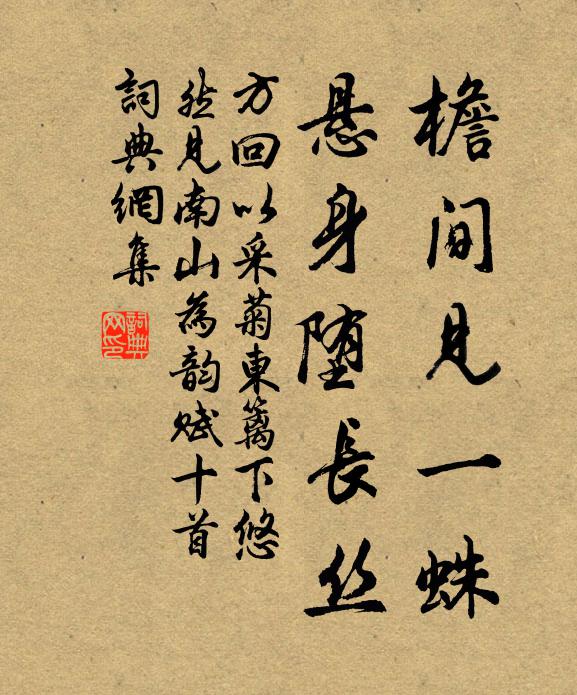 檐间见一蛛
悬身堕长丝
方回以采菊東篱下悠
然见南山為韵赋十首
詞典網集
詞典网印